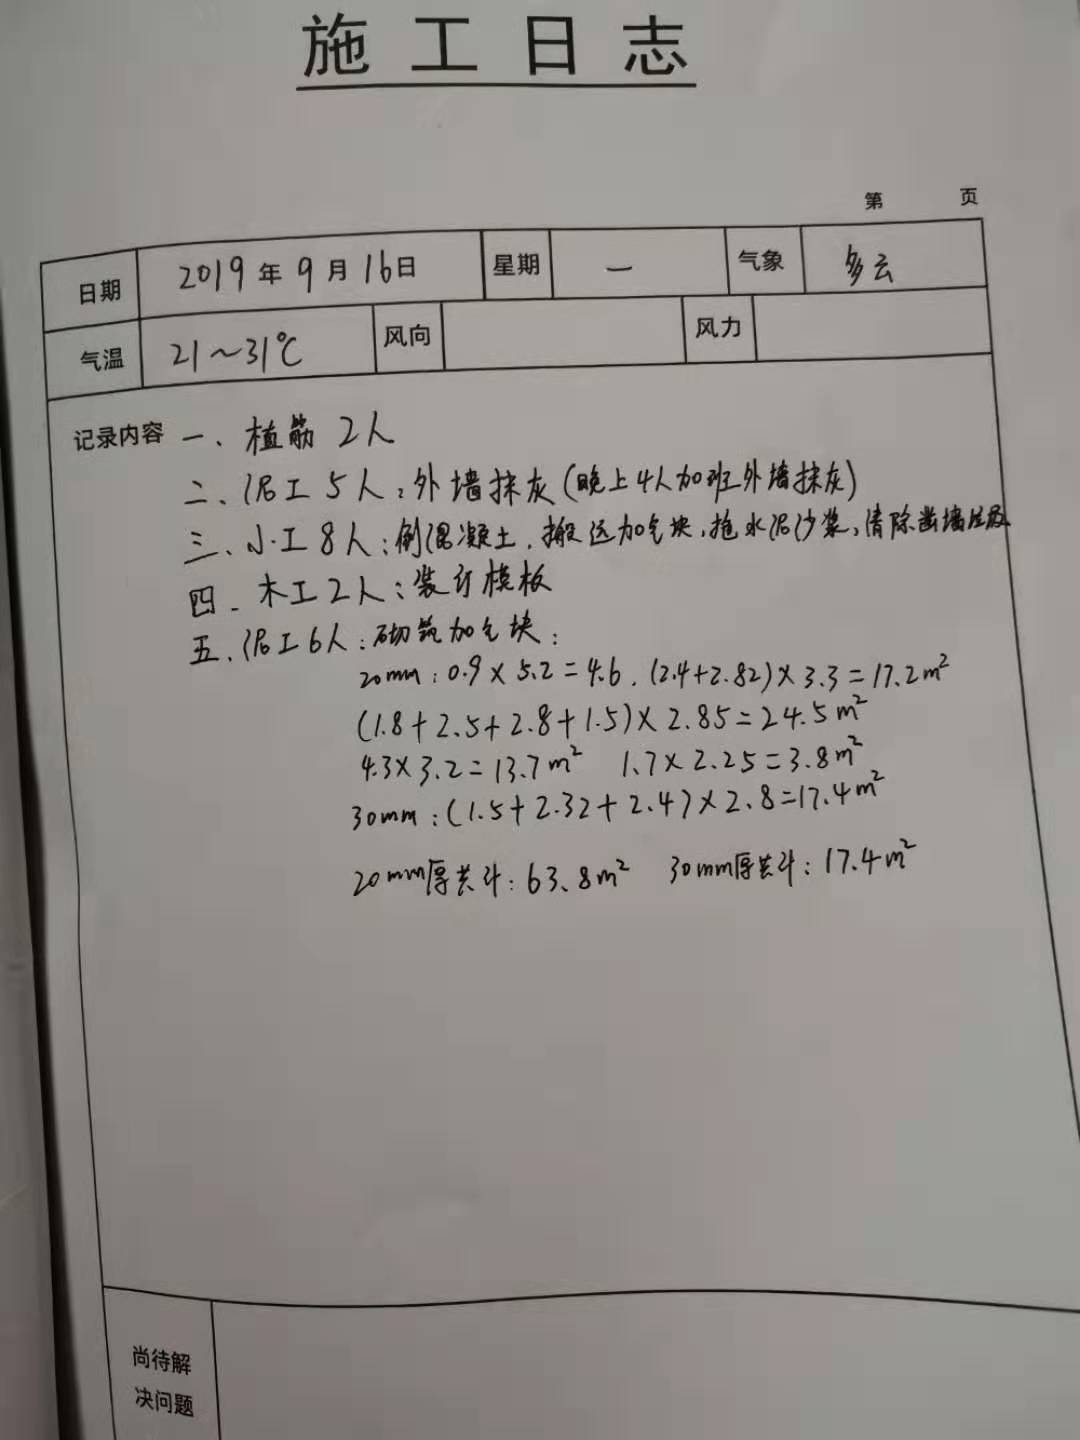 施工日志
第 页
日期 2019年9月16日 星期 一 气象 多云
气温 21～31℃ 风向 风力
记录内容 一、植筋 2人
二、泥工5人：外墙抹灰(晚上4人加班外墙抹灰)
三、小工8人：倒混凝土、搬运加气块、拖水泥沙浆、清除凿墙垃圾
四、木工2人：装订模板
五、泥工6人：砌筑加气块：
20mm：0.9×5.2=4.6．(2.4+2.82)×3.3=17.2m²
(1.8+2.5+2.8+1.5)×2.85=24.5m²
4.3×3.2=13.7m² 1.7×2.25=3.8m²
30mm：(1.5+2.32+2.4)×2.8=17.4m²
20mm厚共计：63.8m² 30mm厚共计：17.4m²
尚待解
决问题